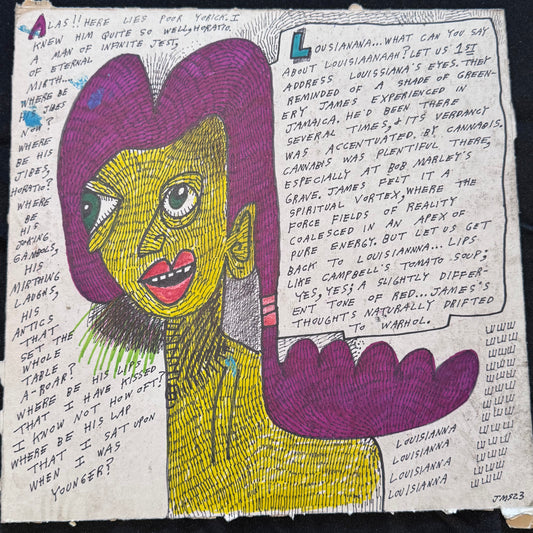 ALAS!! HERE LIES POOR YORICK. I
KNEW HIM QUITE SO WELL, HORATIO.
A MAN OF INFINITE JEST,
OF ETERNAL
MIRTH...
WHERE BE
HIS JIBES
NOW?
WHERE
BE HIS
JIBES,
HORATIO?
WHERE
BE
HIS
JOKING
GAMBOLS,
HIS
MIRTHING
LAUGHS,
HIS
ANTICS
THAT
SET THE
WHOLE
TABLE
A-BOAR?
WHERE BE HIS LIPS
THAT I HAVE KISSED
I KNOW NOT HOW OFT?
WHERE BE HIS LAP
THAT I SAT UPON
WHEN I WAS
YOUNGER?
LOUSIANANA... WHAT CAN YOU SAY
ABOUT LOUISIANNAAH? LET US 1ST
ADDRESS LOUISSIANA'S EYES. THEY
REMINDED OF A SHADE OF GREEN-
ERY JAMES EXPERIENCED IN
JAMAICA. HE'D BEEN THERE
SEVERAL TIMES, & ITS VERDANCY
WAS ACCENTUATED. BY CANNABIS.
CANNABIS WAS PLENTIFUL THERE,
ESPECIALLY AT BOB MARLEY'S
GRAVE. JAMES FELT IT A
SPIRITUAL VORTEX, WHERE THE
FORCE FIELDS OF REALITY
COALESCED IN AN APEX OF
PURE ENERGY. BUT LET US GET
BACK TO LOUISIANNNA... LIPS.
LIKE CAMPBELL'S TOMATO SOUP;
YES, YES; A SLIGHTLY DIFFER-
ENT TONE OF RED... JAMES'S
THOUGHTS NATURALLY DRIFTED
TO WARHOL.
LOUISIANNA
LOUISIANNA
LOUISIANNA
LOUISIANNA
JMS23